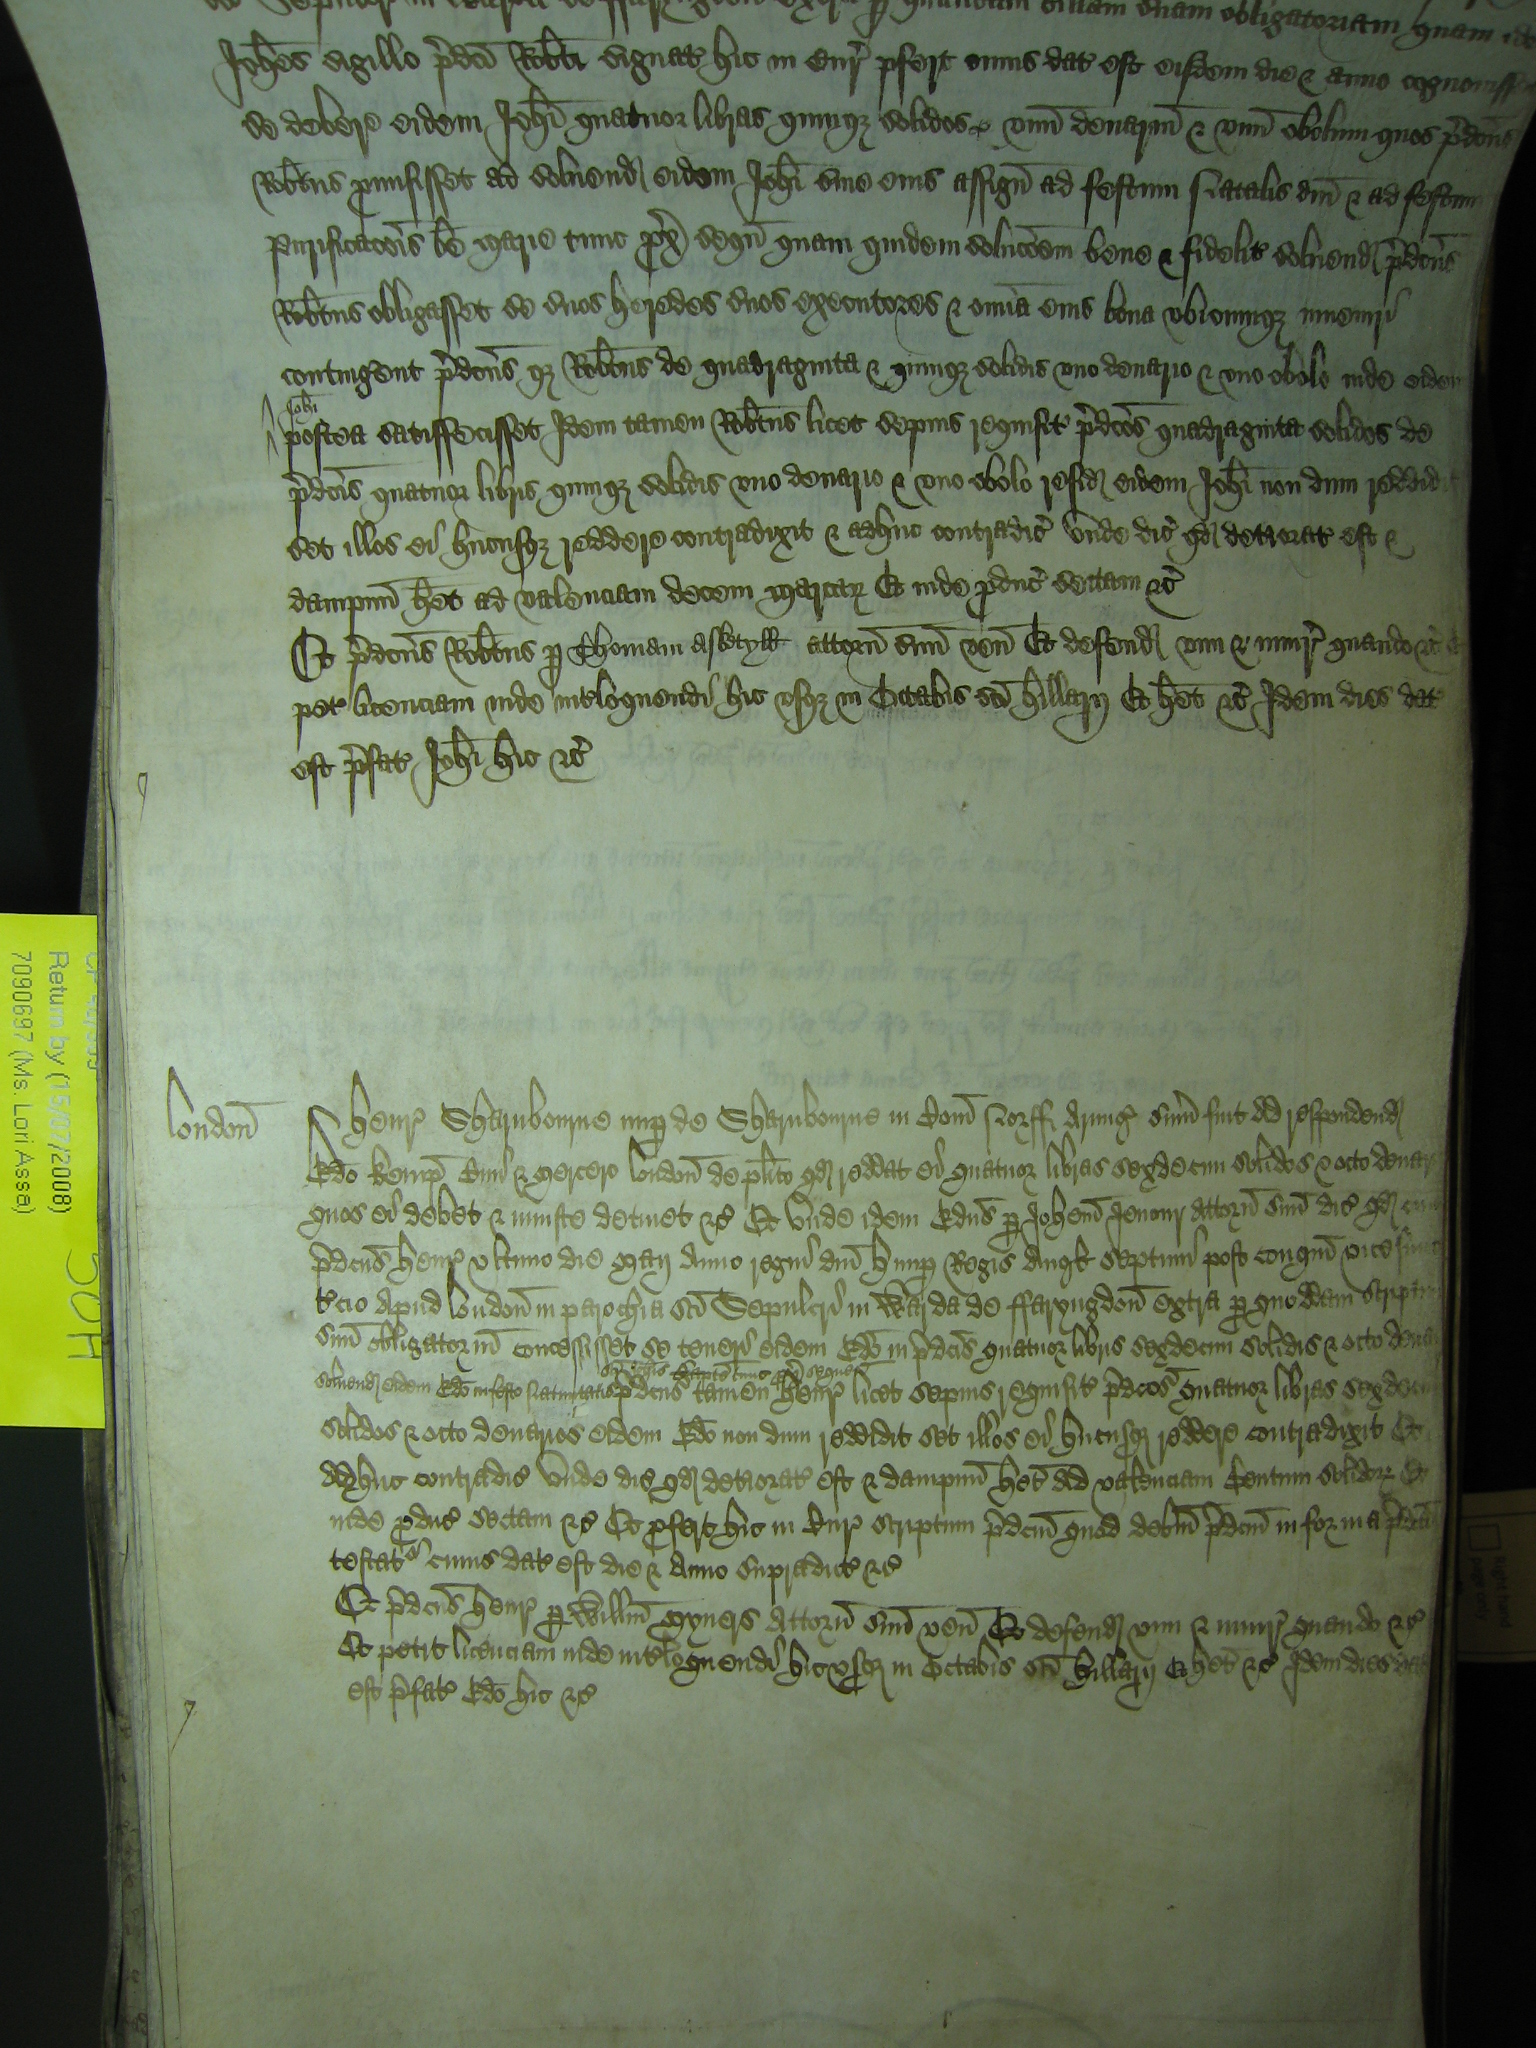 Joħes sigillo p̄dci Robti signat hic in Cur̄ pfert cuius dat est eisdem die & anno cognouiss
se debere eidem Joħi quatuor libras quinqȝ solidos vnū denariū & vnū obolum quos p̄dcūs
Robtus promisisset ad soluend eidem Joħi siue eius assigū ad festum Natalis dn̄i & ad festum
Purificacōis bē Marie tunc px̄ sequn̄ quam quidem solucōem bene & fidelit soluend p̄dcūs
Robtus obligasset se suos heredes suos executores & omīa eius bona vbicumqȝ inueniri
contingent p̄dcūsqȝ Robtus de quadraginta & quinqȝ solidis vno denario & vno obolo inde eidem
Joħi
postea satisfecisset Idem tamen Robtus licet sepius requisit p̄dcōs quadraginta solidos de
p̄dcīs quatuor libris quinqȝ solidis vno denario & vno obolo resid eidem Joħi non dum reddid
set illos ei hucusqȝ reddere contradixit & adhuc contradic̄ Vnde dic̄ qd deteriorat est &
dampnū ħet ad valenciam decem marcar Et inde producˉ sectam &c̄
Et p̄dcūs Robtus p Thomam attorn̄ suū ven̄ Et defend vim & iniur̄ quando &c̄
pet licenciam inde int̄loquendi hic vsqȝ in Octabis sc̄i Hillarij Et ħet &c̄ Idem dies dat
est p̄fat Joħi hic &c̄
London̄ Henr̄ Sharnbourne nup de Sharnbourne in Com̄ Norff Armiḡ sum̄ fuit ad respondend
Edo Kemp̄ Ciui & mercero london̄ de pl̄ito qd reddat ei quatuor libras sexdecim solidos & octo denar
quos ei debet & iniuste detinet &c̄ Et Vnde idem Edus p Joħem Jenour attorn̄ suū dic̄ qd cum
p̄dcūs Henr̄ vltimo die Maij Anno regni dn̄i H nup Regis Angl septimi post conquū vicesimo
t̄cio apud london̄ in parochia sc̄i Sepulcri in Warda de ffaryngdon̄ extra p quoddam scriptum
suū obligatoriū concessisset se teneri eidem Edo in p̄dcīs quatuor libris sexdecim solidis & octo denar
soluend eidem Edo in festo Natiuitatis sc̄i Joħis Bapte tunc px̄ sequen̄ p̄dcūs tamen Henr̄ licet sepius requisit p̄dcōs quatuor libras sexdecim
solidos & octo denarios eidem Edo non dum reddidit set illos ei hucusqȝ reddere contradixit Et
adhuc contradic̄ Vnde dic̄ qd deteriorat est & dampnū ħet ad valenciam Centum solidor Et
inde producˉ sectam &c̄ Et profert hic in Cur̄ scriptum p̄dcm̄ quod debitū p̄dcm̄ in forma p̄dca
testat cuius dat est die & Anno supradict &c̄
Et p̄dcūs Henr̄ p Willm̄ Myners Attorn̄ suū ven̄ Et defend vim & iniur̄ quando &c̄
Et petit licenciam inde int̄loquendi hic vsqȝ in Octabis sc̄i Hillarij Et ħet &c̄ Idem dies dat
est p̄fat Edo hic &c̄
Return by (15/07/2008)
7090697 (Ms. Lori Assa)